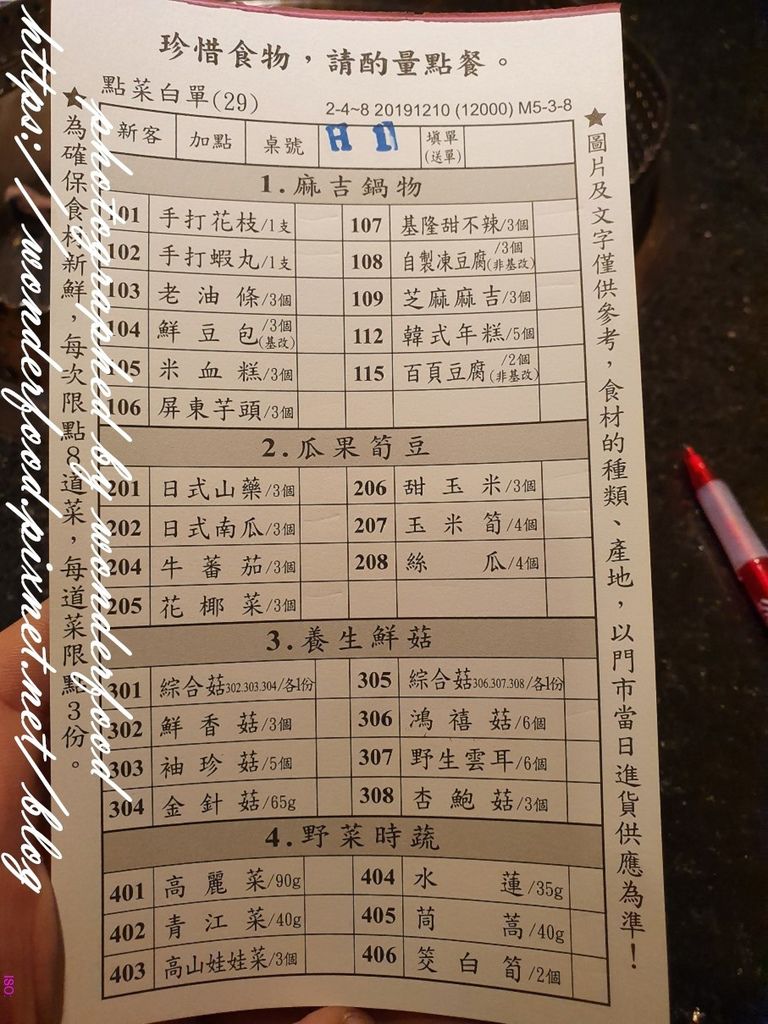 珍惜食物，請酌量點餐。
點菜白單(29)
2-4~8 20191210 (12000) M5-3-8
新客 加點 桌號 H 1 填單(送單)
★為確保食材新鮮，每次限點8道菜，每道菜限點3份。
1.麻吉鍋物
101 手打花枝/1支 107 基隆甜不辣/3個
102 手打蝦丸/1支 108 自製凍豆腐/3個(非基改)
103 老油條/3個 109 芝麻麻吉/3個
104 鮮豆包/3個(基改) 112 韓式年糕/5個
105 米血糕/3個 115 百頁豆腐/2個(非基改)
106 屏東芋頭/3個
2.瓜果筍豆
201 日式山藥/3個 206 甜玉米/3個
202 日式南瓜/3個 207 玉米筍/4個
204 牛蕃茄/3個 208 絲瓜/4個
205 花椰菜/3個
3.養生鮮菇
301 綜合菇302.303.304/各1份 305 綜合菇306.307.308/各1份
302 鮮香菇/3個 306 鴻禧菇/6個
303 袖珍菇/5個 307 野生雲耳/6個
304 金針菇/65g 308 杏鮑菇/3個
4.野菜時蔬
401 高麗菜/90g 404 水蓮/35g
402 青江菜/40g 405 茼蒿/40g
403 高山娃娃菜/3個 406 筊白筍/2個
★圖片及文字僅供參考，食材的種類、產地，以門市當日進貨供應為準！
photographed by wonderfood
https://wonderfood.pixnet.net/blog
ISO